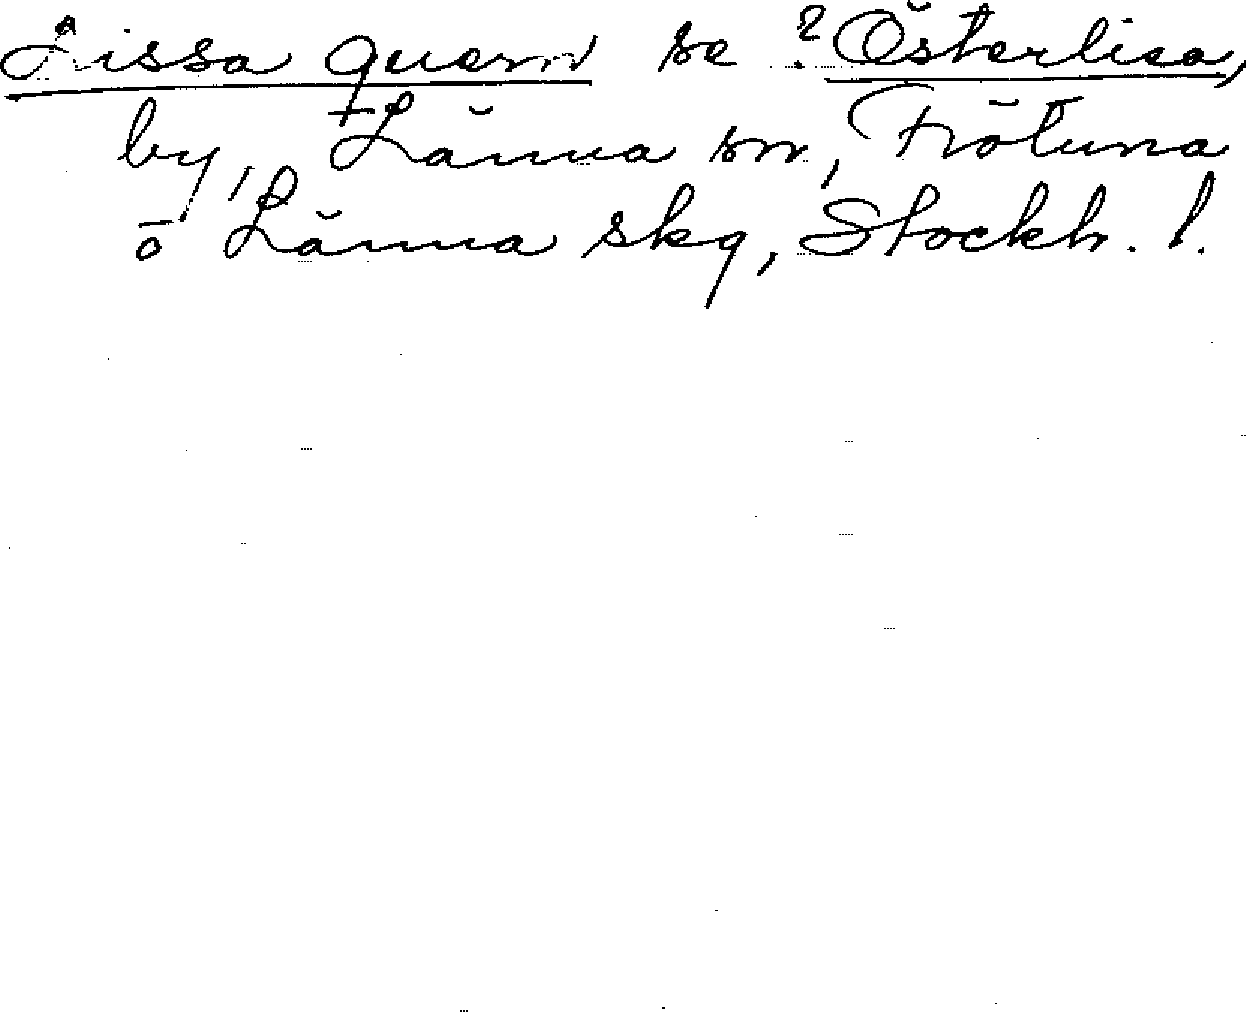 Lissa quarn se ? Österlisa,
by, + Länna sn, Frötuna
o Länna skg, Stockh. l.